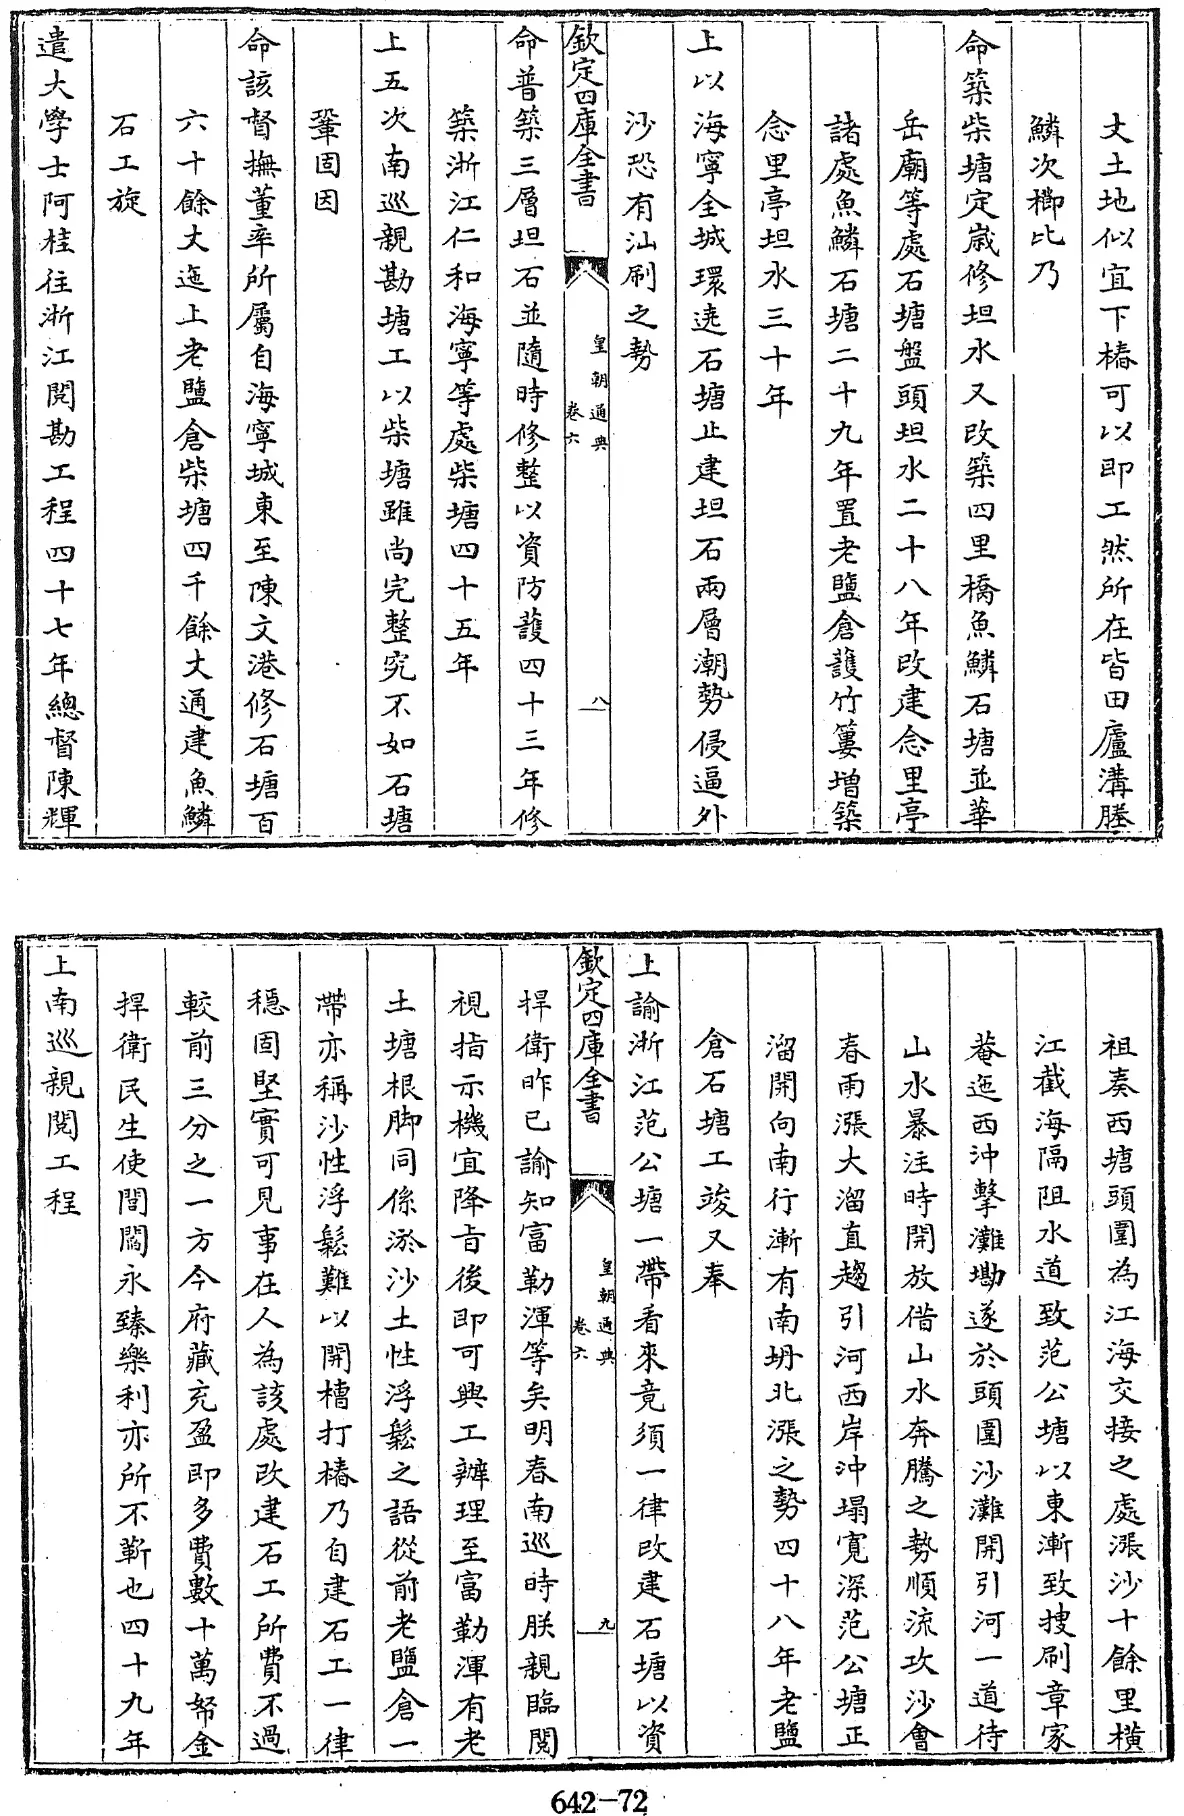 丈土地似宜下樁可以即工然所在皆田廬溝塍
鱗次櫛比乃
命築柴塘定嵗修坦水又改築四里橋魚鱗石塘並華
岳廟等處石塘盤頭坦水二十八年改建念里亭
諸處魚鱗石塘二十九年置老鹽倉護竹簍增築
念里亭坦水三十年
上以海寧全城環遶石塘止建坦石兩層潮勢侵逼外
沙恐有汕刷之勢
欽定四庫全書
皇朝通典
卷六
八
命普築三層坦石並隨時修整以資防護四十三年修
築浙江仁和海寧等處柴塘四十五年
上五次南巡親勘塘工以柴塘雖尚完整究不如石塘
鞏固因
命該督撫董率所屬自海寧城東至陳文港修石塘百
六十餘丈迤上老鹽倉柴塘四千餘丈通建魚鱗
石工旋
遣大學士阿桂往浙江閱勘工程四十七年總督陳輝
祖奏西塘頭圍為江海交接之處漲沙十餘里橫
江截海隔阻水道致范公塘以東漸致搜刷章家
菴迤西沖擊灘坳遂於頭圍沙灘開引河一道待
山水暴注時開放借山水奔騰之勢順流攻沙會
春雨漲大溜直趨引河西岸沖塌寛深范公塘正
溜開向南行漸有南坍北漲之勢四十八年老鹽
倉石塘工竣又奉
上諭浙江范公塘一帶看來竟須一律改建石塘以資
欽定四庫全書
皇朝通典
卷六
九
捍衛昨已諭知富勒渾等矣明春南巡時朕親臨閱
視指示機宜降旨後即可興工辦理至富勒渾有老
土塘根脚同係淤沙土性浮鬆之語從前老鹽倉一
帶亦稱沙性浮鬆難以開槽打樁乃自建石工一律
穩固堅實可見事在人為該處改建石工所費不過
較前三分之一方今府藏充盈即多費數十萬帑金
捍衛民生使閭閻永臻樂利亦所不蘄也四十九年
上南巡親閱工程
642-72